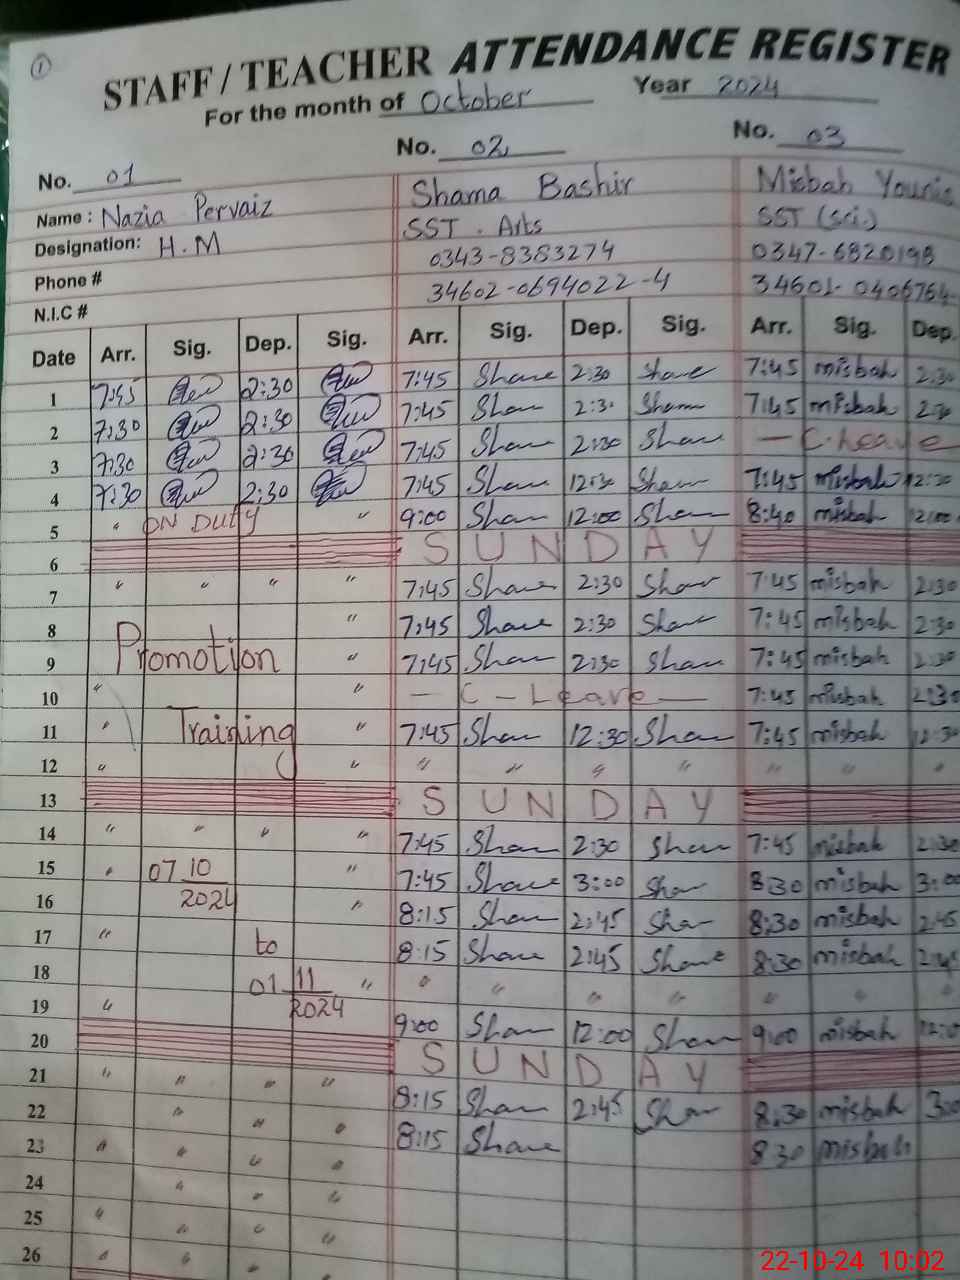 1
STAFF/TEACHER ATTENDANCE REGISTER
For the month of October Year 2024
No. 01 No. 02 No. 03
Name: Nazia Pervaiz Shama Bashir Misbah Younis
Designation: H.M SST. Arts SST (Sci.)
Phone # 0343-8383274 0347-6820198
N.I.C # 34602-0694022-4 34601-0406764-
Date Arr. Sig. Dep. Sig. Arr. Sig. Dep. Sig. Arr. Sig. Dep.
1 7:45 2:30 7:45 Shama 2:30 Shama 7:45 misbah 2:30
2 7:30 2:30 7:45 Sham 2:30 Sham 7:45 misbah 2:30
3 7:30 2:30 7:45 Sham 2:30 Sham — C. Leave
4 7:30 2:30 7:45 Sham 12:30 Sham 7:45 misbah 12:30
5 " ON DUTY " 9:00 Sham 12:00 Sham 8:40 misbah 12:00
6 SUNDAY
7 " " " " 7:45 Sham 2:30 Sham 7:45 misbah 2:30
8 " 7:45 Sham 2:30 Sham 7:45 misbah 2:30
9 Promotion " 7:45 Sham 2:30 Sham 7:45 misbah 2:30
10 " " — C - Leave — 7:45 misbah 2:30
11 " Training " 7:45 Sham 12:30 Sham 7:45 misbah 12:30
12 " " " " " " " " "
13 SUNDAY
14 " " " " 7:45 Sham 2:30 Sham 7:45 misbah 2:30
15 " 07 10 " 7:45 Sham 3:00 Sham 8:30 misbah 3:00
16 2024 " 8:15 Sham 2:45 Sham 8:30 misbah 2:45
17 " to 8:15 Sham 2:45 Sham 8:30 misbah 2:45
18 01 11 " " " " " " " "
19 " 2024 9:00 Sham 12:00 Sham 9:00 misbah 12:00
20 SUNDAY
21 " " " " 8:15 Sham 2:45 Sham 8:30 misbah 3:00
22 " " " 8:15 Sham 8:30 misbah
23 " " " "
24 " " "
25 " " "
26 " " "
22-10-24 10:02